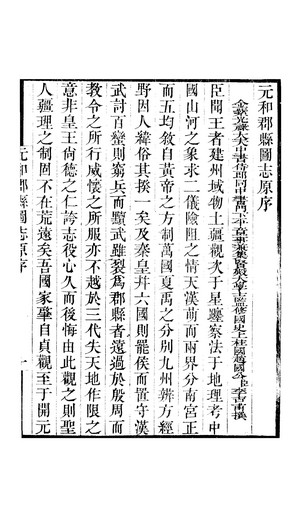 元和郡縣圖志原序
金紫光祿大夫中書侍郎同中書門下平章事兼集賢殿大學士監修國史上柱國趙國公臣李吉甫撰
臣聞王者建州域物土疆觀次于星躔察法于地理考中
國山河之象求二儀險阻之情天漢萌而兩界分南宮正
而五均敘自黃帝之方制萬國夏禹之分別九州辨方經
野因人緯俗其揆一矣及秦皇并六國則罷侯而置守漢
武討百蠻則窮兵而黷武雖裂為郡縣者遠過於殷周而
教令之所行威懷之所服亦不越於三代失天地作限之
意非皇王尚德之仁誇志役心久而後悔由此觀之則聖
人疆理之制固不在荒遠矣吾國家肇自貞觀至于開元
元和郡縣圖志原序
一